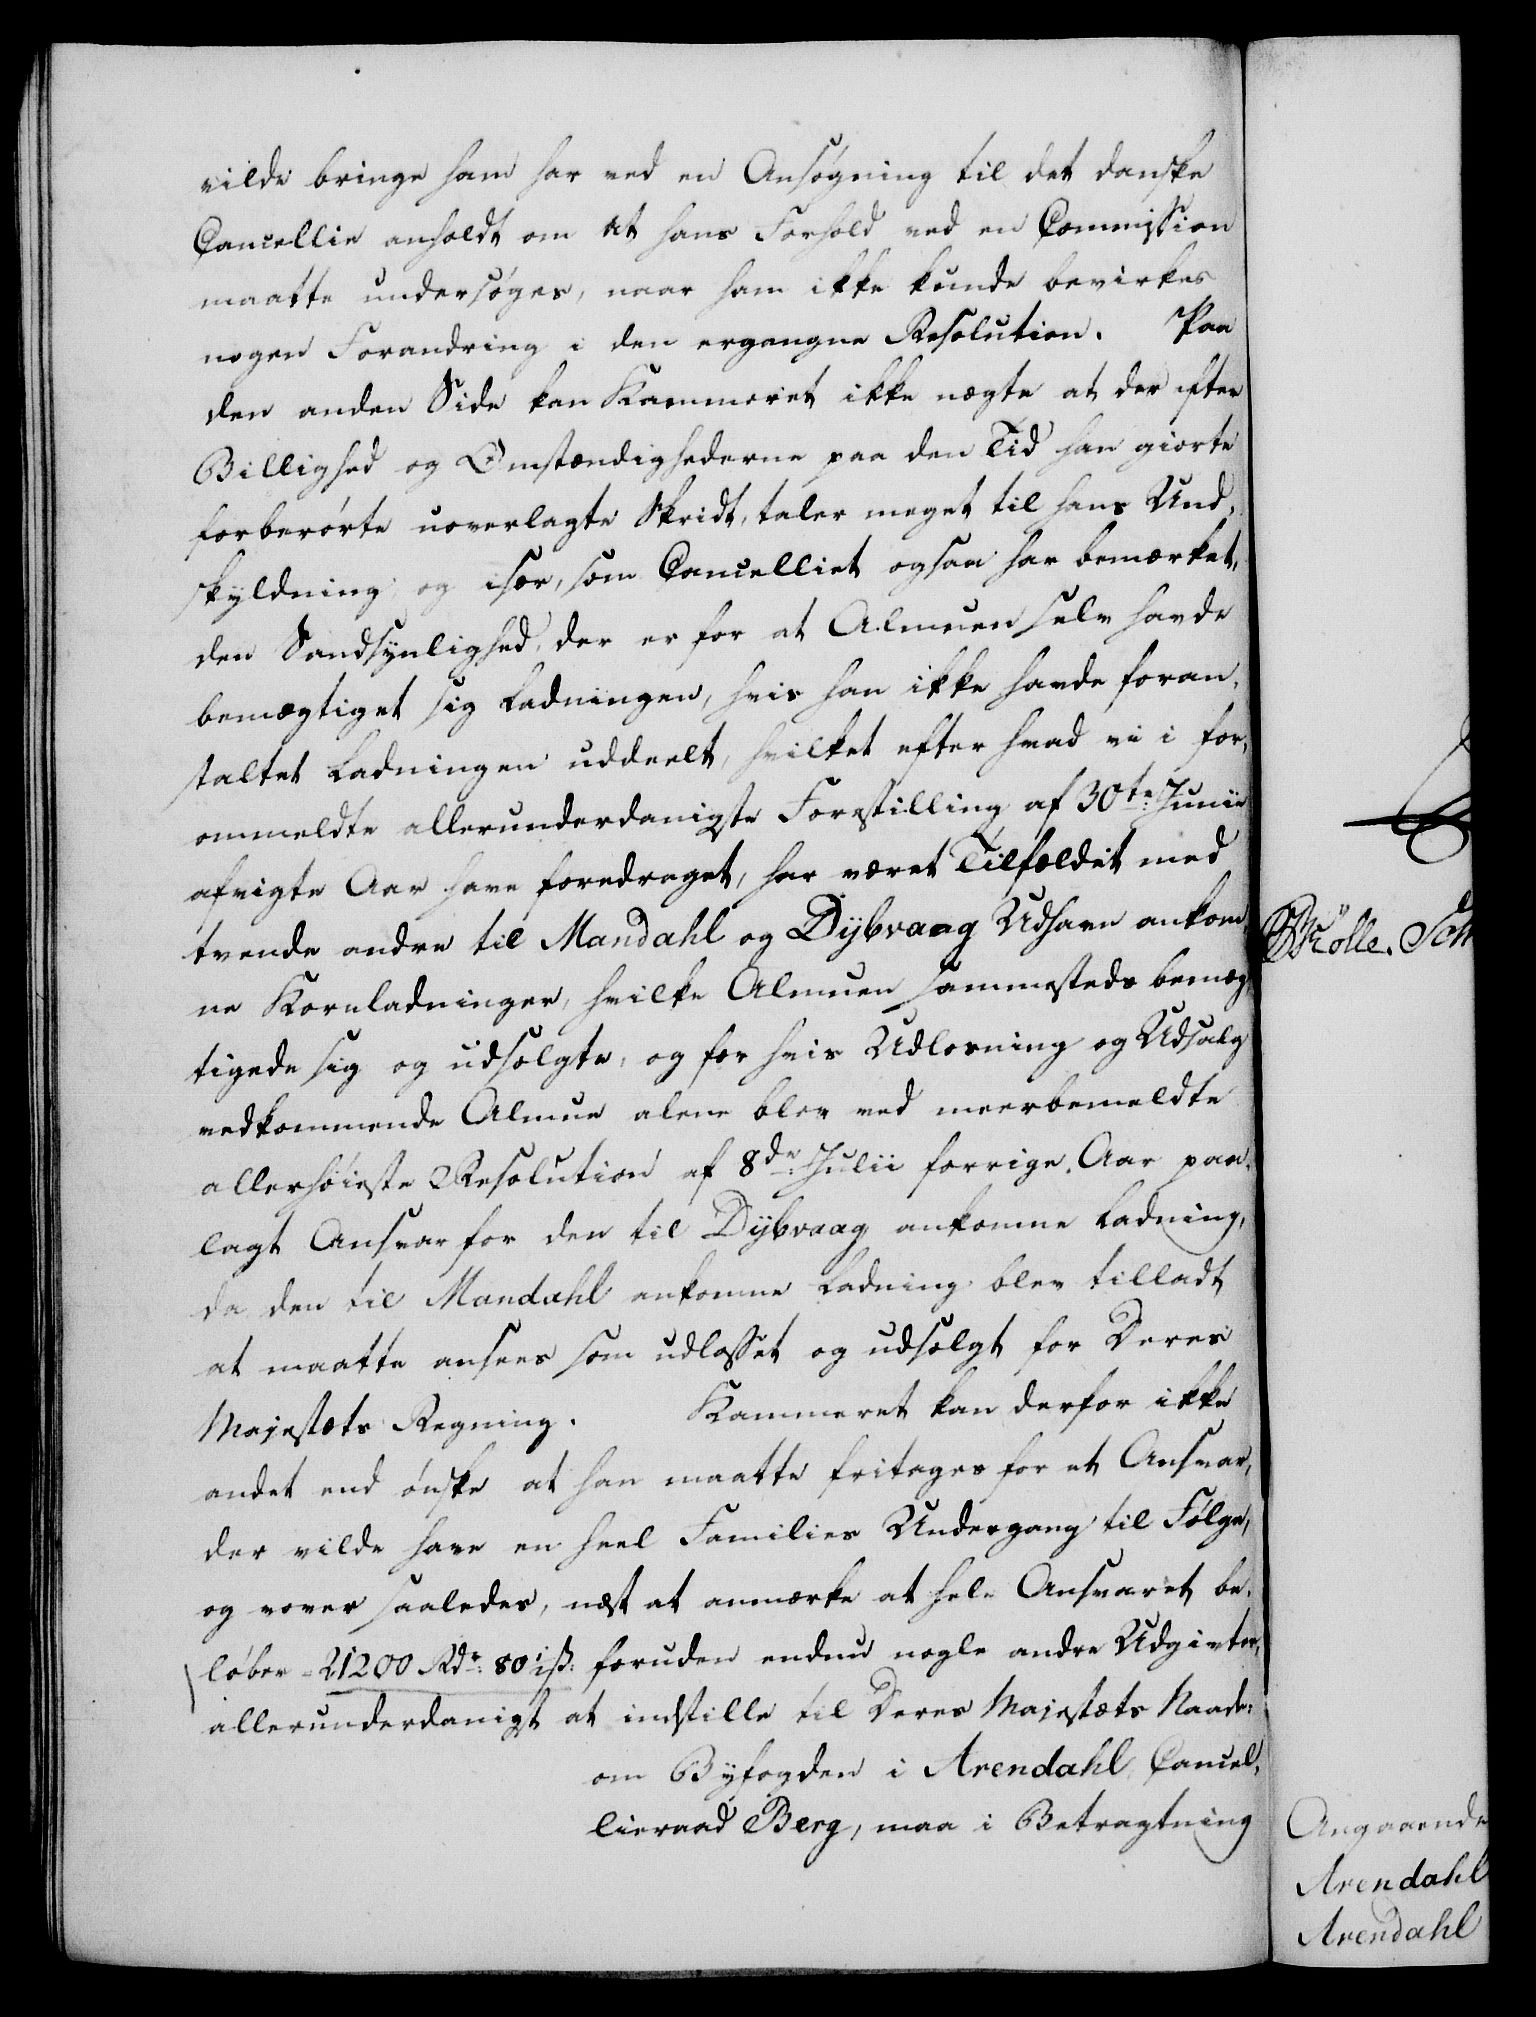 vilde bringe ham har ved en Ansøgning til det danske
Cancellie anholdt om at hans Forhold ved en Commission
maatte undersøges, naar ham ikke kunde bevirkes
nogen Forandring i den ergangne Resolution. Paa
den anden Side kan Kammeret ikke nægte at der efter
Billighed og Omstændighederne paa den Tid han giorte
forberørte uoverlagte Skridt, taler meget til hans Und-
skyldning, og især, som Cancelliet ogsaa har bemærket,
den Sandsynlighed, der er for at Almuen selv havde
bemægtiget sig Ladningen, hvis han ikke havde foran-
staltet Ladningen uddeelt, hvilket efter hvad vi i for-
ommeldte allerunderdanigste Forestilling af 30te Junii
afvigte Aar have foredraget, har været Tilfældet med
tvende andre til Mandahl og Dybvaag Udhavn ankom-
ne Kornladninger, hvilke Almuen sammesteds bemæg-
tigede sig og udsolgte, og for hvis Udlosning og Udsalg
vedkommende Almue alene blev ved meerbemeldte
allerhøieste Resolution af 8de Julii forrige Aar paa-
lagt Ansvar for den til Dybvaag ankomne Ladning,
da den til Mandahl ankomne Ladning blev tilladt
at maatte ansees som udlosset og udsolgt for Deres
Majestæts Regning. Kammeret kan derfor ikke
andet end ønske at han maatte fritages for et Ansvar,
der vilde have en heel Families Undergang til Følge,
og vover saaledes, næst at anmærke at hele Ansvaret be-
løber 21200 Rdr. 80 1/2 ß. foruden endnu nogle andre Udgivter,
allerunderdanigst at indstille til Deres Majestæts Naade:
om Byfogden i Arendahl Cancel-
lieraad Berg, maa i Betragtning
Angaaende
Arendahl
Arendahl